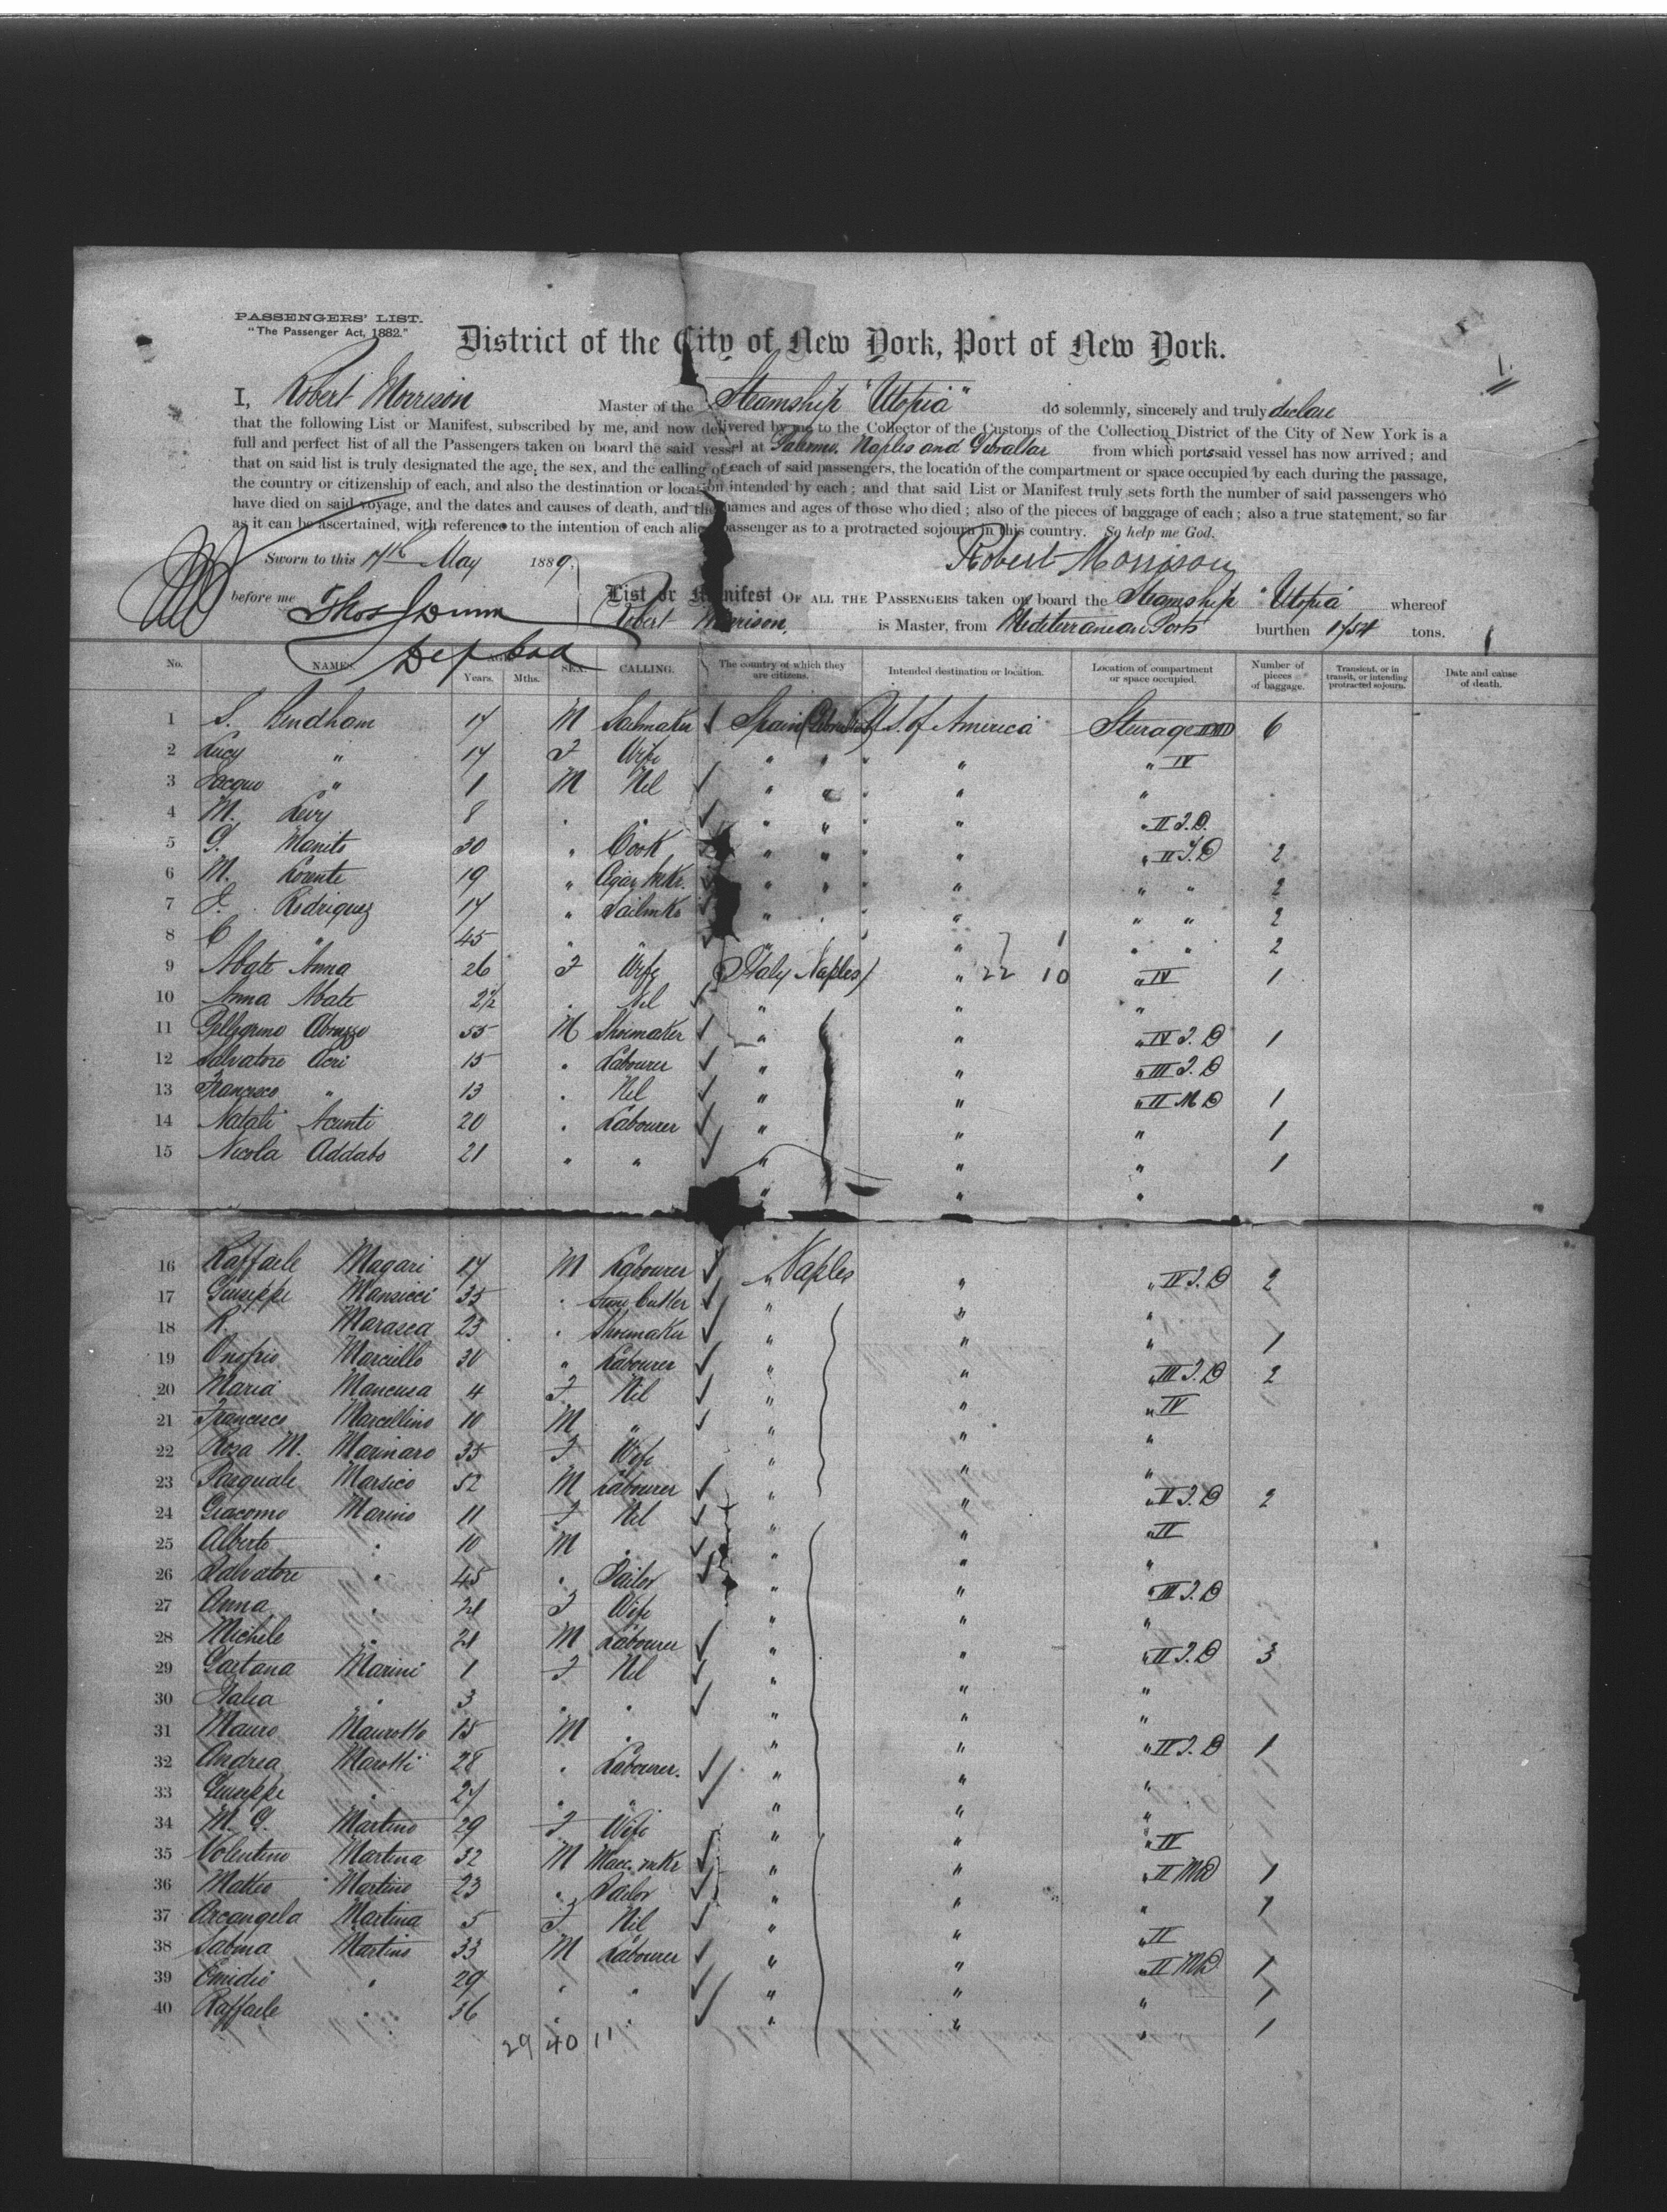 PASSENGERS' LIST.
"The Passenger Act, 1882."
District of the City of New York, Port of New York.
1.
I, Robert Morrison Master of the Steamship "Utopia" do solemnly, sincerely and truly declare
that the following List or Manifest, subscribed by me, and now delivered by me to the Collector of the Customs of the Collection District of the City of New York is a
full and perfect list of all the Passengers taken on board the said vessel at Palermo, Naples and Gibraltar from which ports said vessel has now arrived; and
that on said list is truly designated the age, the sex, and the calling of each of said passengers, the location of the compartment or space occupied by each during the passage,
the country or citizenship of each, and also the destination or location intended by each; and that said List or Manifest truly sets forth the number of said passengers who
have died on said voyage, and the dates and causes of death, and the names and ages of those who died; also of the pieces of baggage of each; also a true statement, so far
as it can be ascertained, with reference to the intention of each alien passenger as to a protracted sojourn in this country. So help me God.
Sworn to this May 1889. Robert Morrison
before me Thos Dunn
List or Manifest OF ALL THE PASSENGERS taken on board the Steamship "Utopia" whereof
Robert Morrison, is Master, from Mediterranean Ports burthen 1754 tons.
No. NAMES. AGE. Years. Mths. SEX. CALLING. The country of which they are citizens. Intended destination or location. Location of compartment or space occupied. Number of pieces of baggage. Transient, or in transit, or intending protracted sojourn. Date and cause of death.
1 S. 17 M Sailmaker Spain U.S. of America Sturage 6
2 Lucy " 17 F Wife " " " " IV
3 " 1 M Nil " " " "
4 M. Levy 8 " " " " " " II T.D.
5 G. Manito 30 " Cook " " " " II T.D 2
6 M. 19 " " " " " " 2
7 Rodriquez 17 " Sailmkr " " " " " 2
8 C " 45 " " " " " 2
9 Abate Anna 26 F Wife Italy (Naples) " 22 10 " IV 1
10 Anna Abate 2½ " Nil " " "
11 Pellegrino Abruzzo 55 M Shoemaker " " " IV T.D 1
12 Salvatore Acri 15 " Labourer " " " III T.D
13 Francesco " 13 " Nil " " " II M D 1
14 Natali Acunti 20 " Labourer " " " 1
15 Nicola Addabo 21 " " " " " 1
16 Raffaele Magari 17 M Labourer " Naples " " IV T.D 2
17 Giuseppe Mansicci 35 " Cutter " " "
18 R. Marasca 23 " Shoemaker " " " 1
19 Onofrio Marciello 30 " Labourer " " " III T.D 2
20 Maria Mancusa 4 F Nil " " " IV
21 Francesco Marcellino 10 M " " " "
22 Rosa M. Marinaro 35 F Wife " " "
23 Pasquale Marsico 52 M Labourer " " " II T.D 2
24 Giacomo Marino 11 F Nil " " " II
25 Alberto " 10 M " " " "
26 Salvatore " 45 " Tailor " " " III T.D
27 Anna " 21 F Wife " " "
28 Michele " 21 M Labourer " " " II T.D 3
29 Gaetana Marini 1 F Nil " " "
30 Italia " 3 " " " " "
31 Mauro Maurotto 15 M " " " " II T.D 1
32 Andrea Marotti 28 " Labourer. " " "
33 Giuseppe " 27 " " " " "
34 M. G. Martino 29 F Wife " " " IV
35 Volentino Martina 32 M Macc. mkr " " " II MD 1
36 Matteo Martino 23 " Tailor " " " 1
37 Arcangela Martina 5 F Nil " " " II
38 Sabina Martino 33 M Labourer " " " II MD 1
39 Emidio " 29 " " " " " 1
40 Raffaele " 36 " " " " " 1
29 40 11